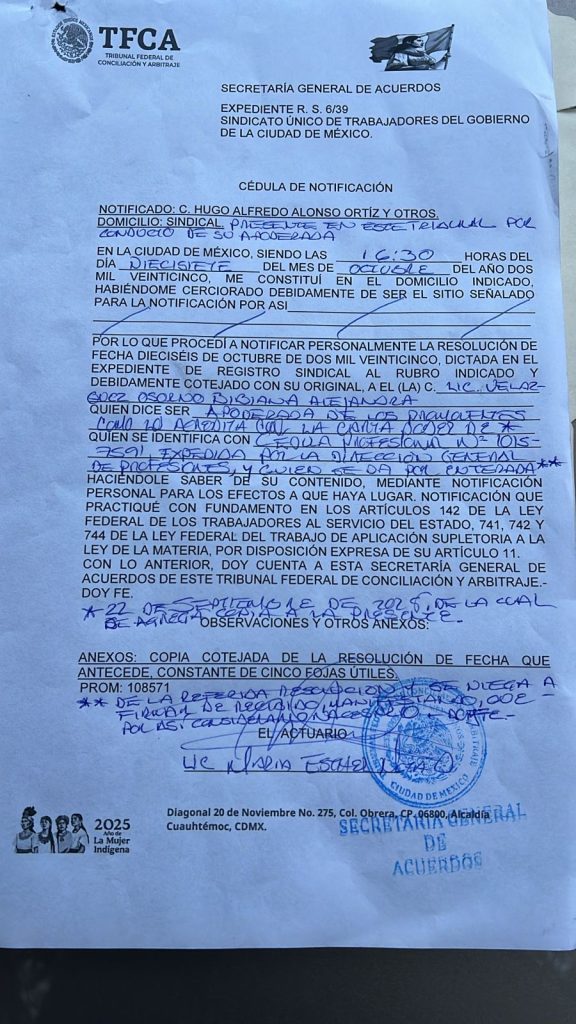 TFCA
TRIBUNAL FEDERAL DE
CONCILIACIÓN Y ARBITRAJE
SECRETARÍA GENERAL DE ACUERDOS
EXPEDIENTE R. S. 6/39
SINDICATO ÚNICO DE TRABAJADORES DEL GOBIERNO
DE LA CIUDAD DE MÉXICO.
CÉDULA DE NOTIFICACIÓN
NOTIFICADO: C. HUGO ALFREDO ALONSO ORTÍZ Y OTROS.
DOMICILIO: SINDICAL. PRESENTE EN ESTE TRIBUNAL POR
CONDUCTO DE SU APODERADA
EN LA CIUDAD DE MÉXICO, SIENDO LAS 16:30 HORAS DEL
DÍA DIECISIETE DEL MES DE OCTUBRE DEL AÑO DOS
MIL VEINTICINCO, ME CONSTITUÍ EN EL DOMICILIO INDICADO,
HABIÉNDOME CERCIORADO DEBIDAMENTE DE SER EL SITIO SEÑALADO
PARA LA NOTIFICACIÓN POR ASI
POR LO QUE PROCEDÍ A NOTIFICAR PERSONALMENTE LA RESOLUCIÓN DE
FECHA DIECISÉIS DE OCTUBRE DE DOS MIL VEINTICINCO, DICTADA EN EL
EXPEDIENTE DE REGISTRO SINDICAL AL RUBRO INDICADO Y
DEBIDAMENTE COTEJADO CON SU ORIGINAL, A EL (LA) C. LIC. VELAZ-
QUEZ OSORNO BIBIANA ALEJANDRA
QUIEN DICE SER APODERADA DE LOS PROMOVENTES
COMO LO ACREDITA CON LA CARTA PODER DE *
QUIEN SE IDENTIFICA CON CEDULA PROFESIONAL Nº 1015-
7591, EXPEDIDA POR LA DIRECCIÓN GENERAL
DE PROFESIONES, Y QUIEN SE DA POR ENTERADA **
HACIÉNDOLE SABER DE SU CONTENIDO, MEDIANTE NOTIFICACIÓN
PERSONAL PARA LOS EFECTOS A QUE HAYA LUGAR. NOTIFICACIÓN QUE
PRACTIQUÉ CON FUNDAMENTO EN LOS ARTÍCULOS 142 DE LA LEY
FEDERAL DE LOS TRABAJADORES AL SERVICIO DEL ESTADO, 741, 742 Y
744 DE LA LEY FEDERAL DEL TRABAJO DE APLICACIÓN SUPLETORIA A LA
LEY DE LA MATERIA, POR DISPOSICIÓN EXPRESA DE SU ARTÍCULO 11.
CON LO ANTERIOR, DOY CUENTA A ESTA SECRETARÍA GENERAL DE
ACUERDOS DE ESTE TRIBUNAL FEDERAL DE CONCILIACIÓN Y ARBITRAJE.-
DOY FE.
* 22 DE SEPTIEMBRE DE 2025 DE LA CUAL
SE AGREGA COPIA A LA PRESENTE.-
OBSERVACIONES Y OTROS ANEXOS:
ANEXOS: COPIA COTEJADA DE LA RESOLUCIÓN DE FECHA QUE
ANTECEDE, CONSTANTE DE CINCO FOJAS ÚTILES.
PROM: 108571
** DE LA REFERIDA RESOLUCIÓN Y SE NIEGA A
FIRMAR DE RECIBIDO, MANIFESTANDO, QUE
POR ASI CONSIDERARLO NECESARIO.
EL ACTUARIO
LIC MARIA ESTHER
CIUDAD DE MÉXICO
SECRETARÍA GENERAL
DE
ACUERDOS
2025
Año de
La Mujer
Indígena
Diagonal 20 de Noviembre No. 275, Col. Obrera, CP. 06800, Alcaldía
Cuauhtémoc, CDMX.